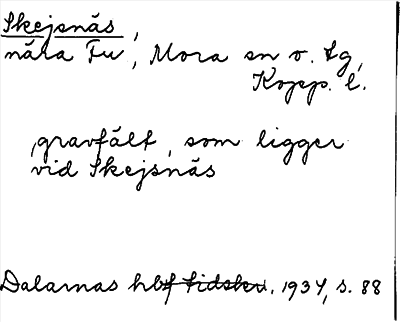 Skejsnäs,
nära Fu, Mora sn o. tg,
Kopp. l.
,gravfält, som ligger
vid Skejsnäs
Dalarnas hbf tidskr. 1937, s. 88